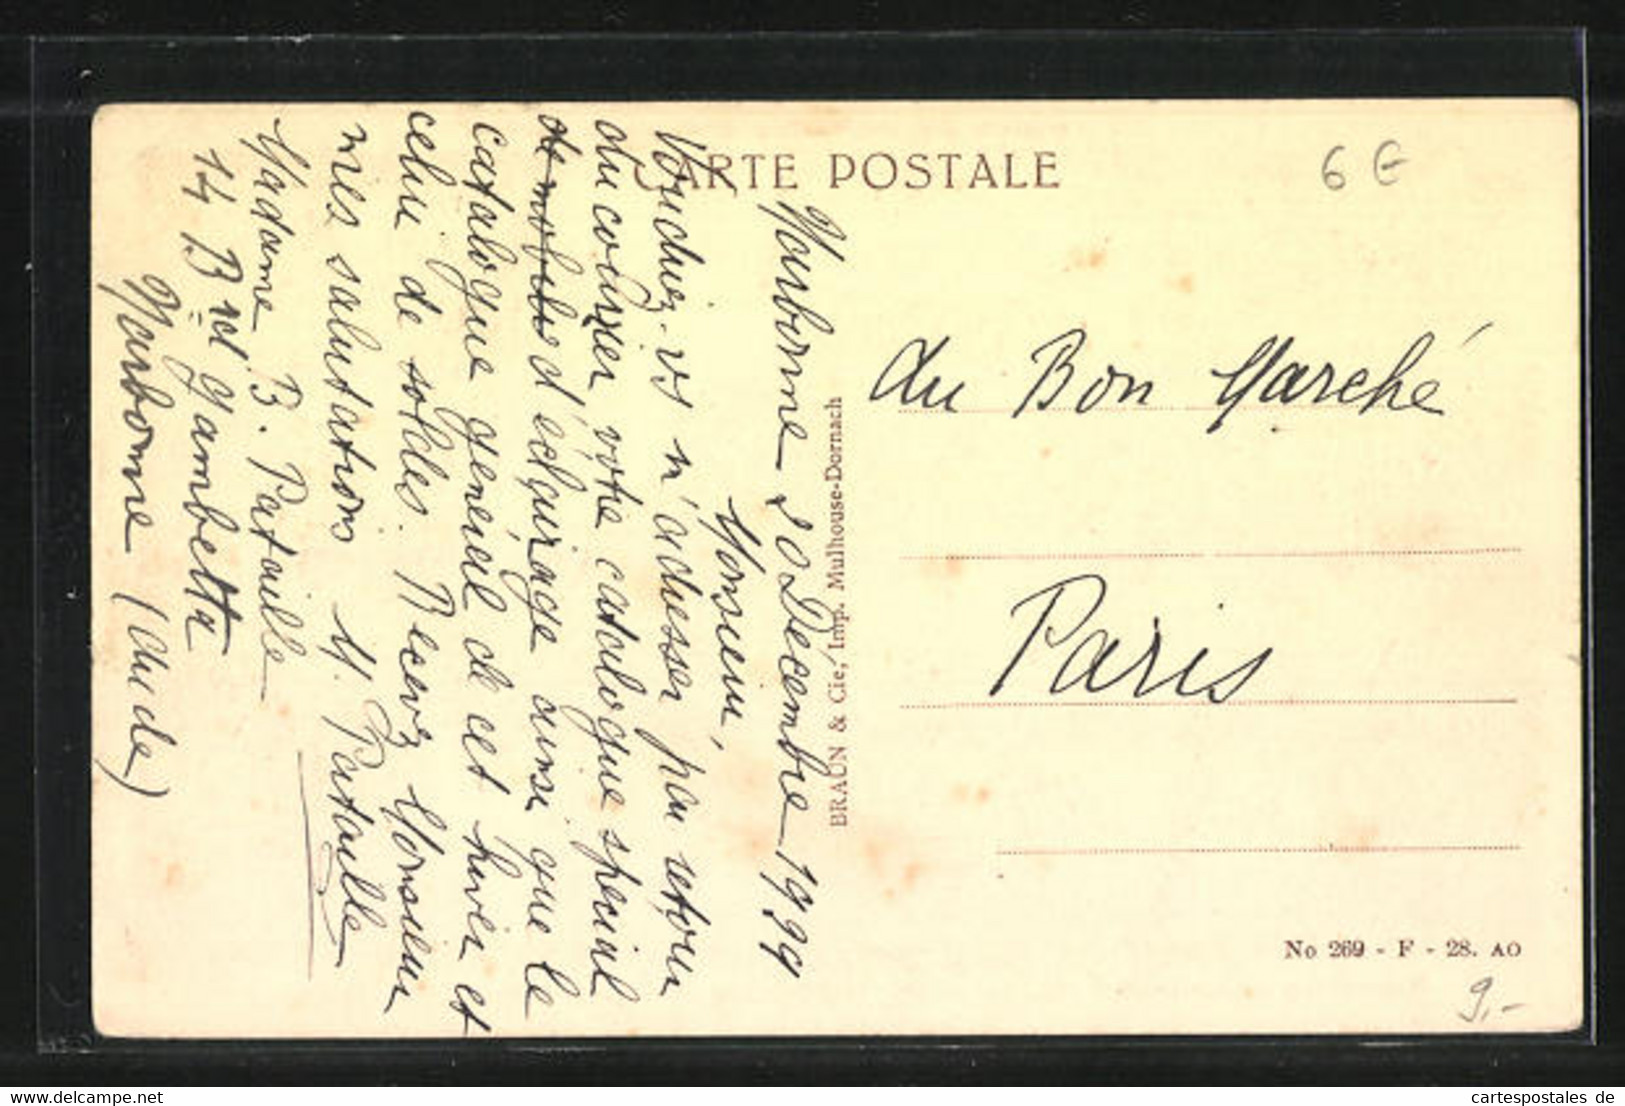 CARTE POSTALE
6 €
Narbonne 20 Décembre
Monsieur,
Voudriez-vs m'adresser par retour
du courrier votre catalogue spécial
de mobilier d'éclairage ainsi que le
catalogue général de cet hiver et
celui de soldes. Recevez Monsieur
mes salutations M. Partaille
Madame B. Partaille
14 Bd Gambetta
Narbonne (Aude)
BRAUN & Cie, Imp. Mulhouse-Dornach
Au Bon Marché
Paris
No 269 - F - 28. AO
9.-
www.delcampe.net
cartespostales de